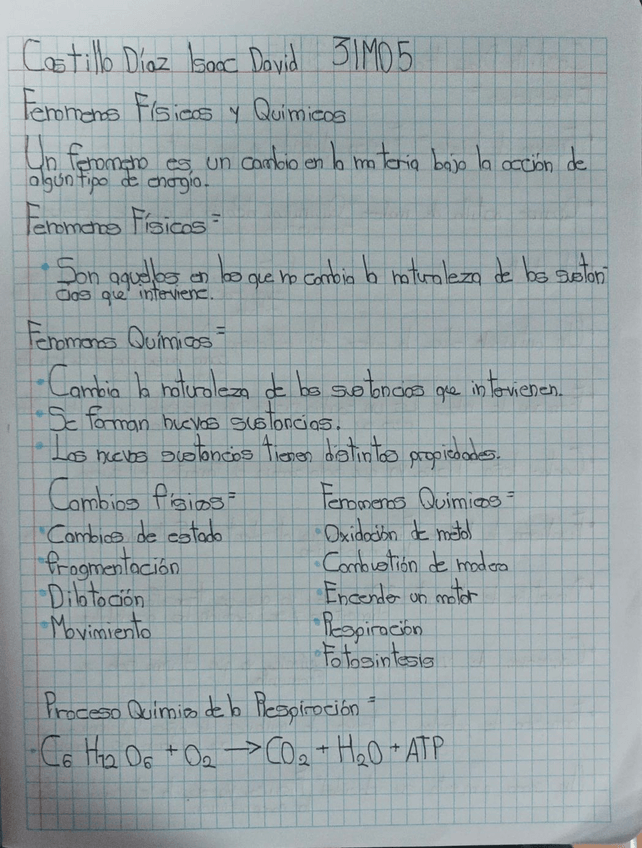 Castillo Díaz Isaac David 31M05
Fenomenos Físicos y Químicos
Un fenomeno es un cambio en la materia bajo la acción de
algún tipo de energía.
Fenomenos Físicos=
Son aquellos en los que no cambia la naturaleza de las sustan
cias que interviene.
Fenomenos Químicos=
Cambia la naturaleza de las sustancias que intervienen.
Se forman nuevas sustancias.
Las nuevas sustancias tienen distintas propiedades.
Cambios físicos= Fenomenos Químicos=
Cambios de estado Oxidación de metal
fragmentación Combustión de madera
Dilatación Encender un motor
Movimiento Respiración
Fotosintesis
Proceso Químico de la Respiración=
C₆ H₁₂ O₆ + O₂ → CO₂ + H₂O + ATP